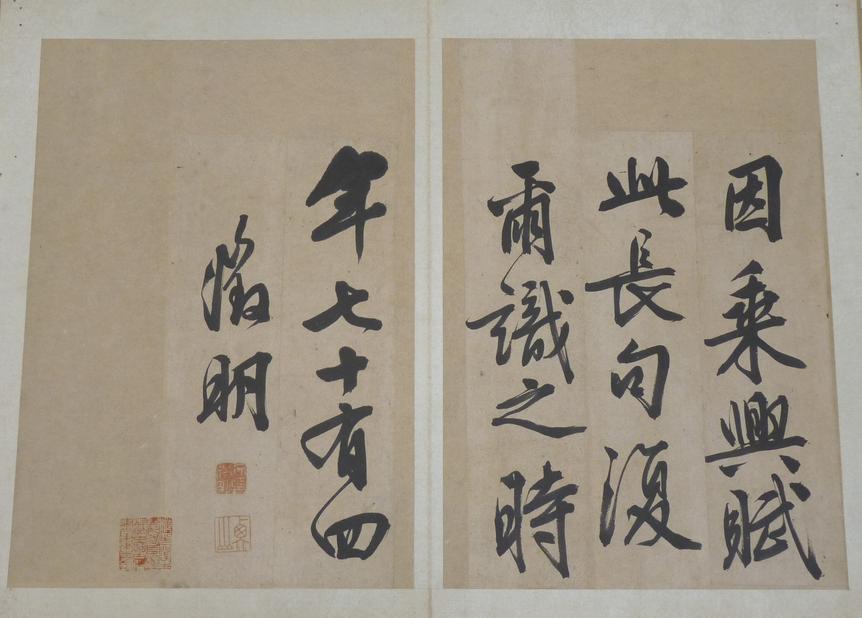 因乗興賦
此長句復
爾識之時
年七十有四
徵明